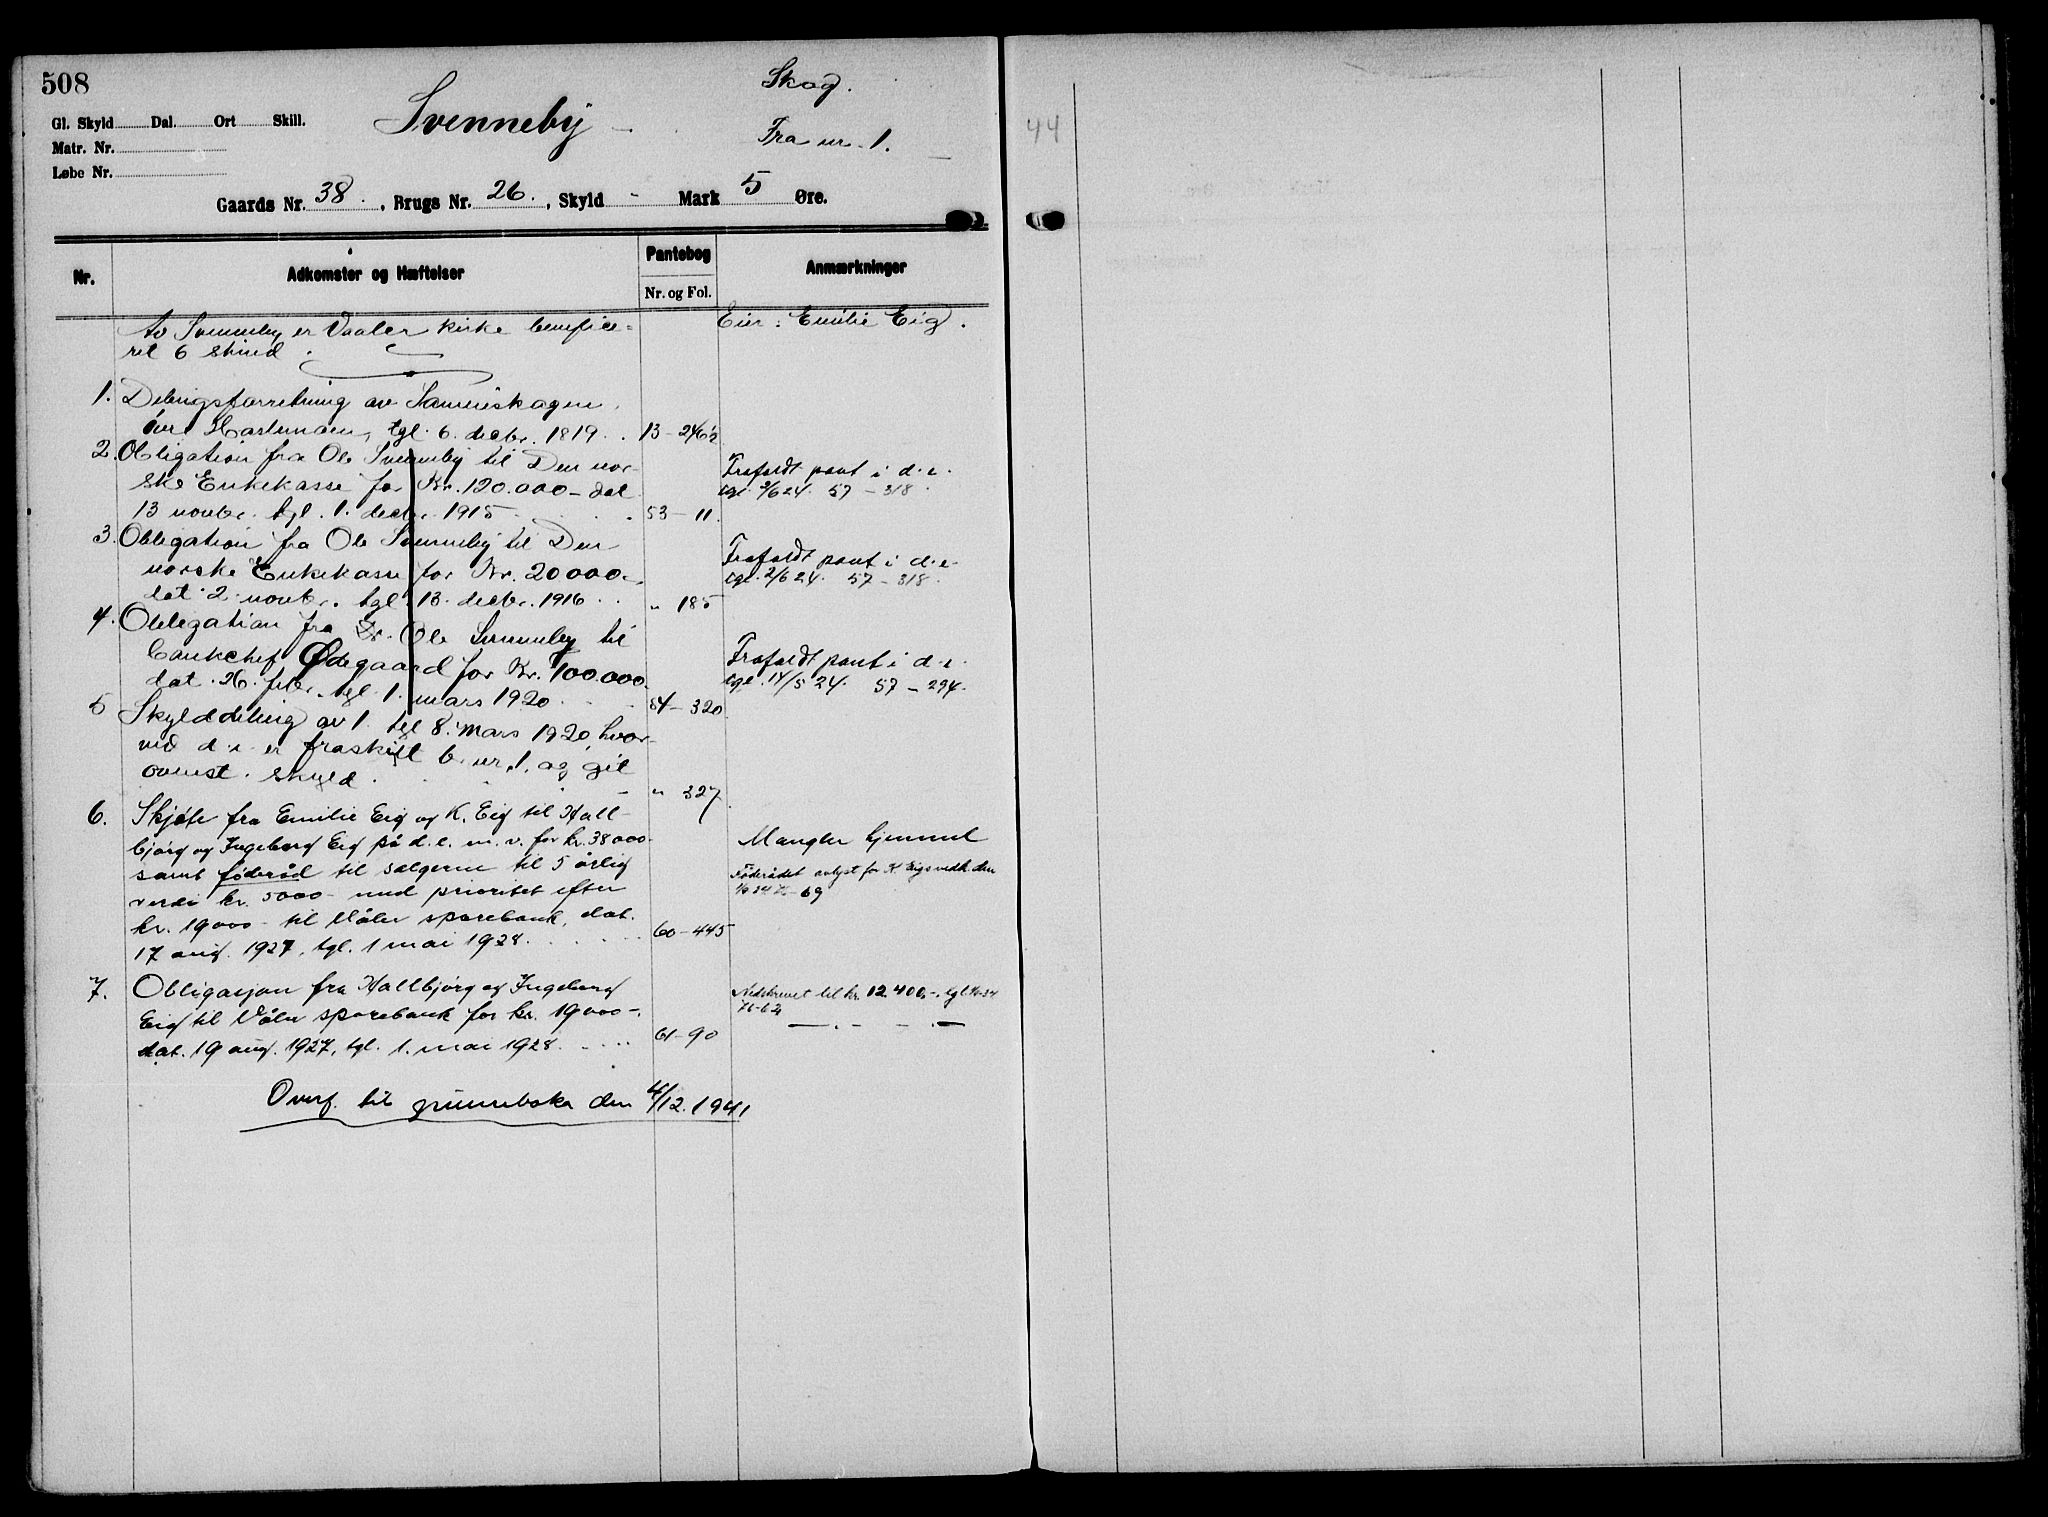 508
Svenneby
Skog.
Gl. Skyld Dal. Ort Skill.
Matr. Nr.
Løbe Nr.
Fra nr. 1.
44
Gaards Nr. 38. , Brugs Nr. 26. , Skyld - Mark 5 Øre.
Nr. Adkomster og Hæftelser Pantebog Anmærkninger
Nr. og Fol.
Av Svenneby er Vaaler kirke benefice- Eier: Emilie Eig.
ret 6 skind.
1. Delingsforretning av Sameieskogen
tgl. 6. decbr. 1819. 13-246½
2. Obligation fra Ole Svenneby til Den nor-
ske Enkekasse for Kr. 120.000- dat. Frafaldt pant i d.e.
13 novbr. tgl. 1. decbr. 1915 53-11. tgl. 2/6 24. 57-318.
3. Obligation fra Ole Svenneby til Den
norske Enkekasse for Kr. 20000-, Frafaldt pant i d.e.
dat. 2. novbr. tgl. 13. decbr. 1916 " 185 tgl. 2/6 24. 57-318.
4. Obligation fra Dr. Ole Svenneby til
bankchef Ødegaard for Kr. 100.000. Frafaldt pant i d.e.
dat. 26. febr. tgl. 1. mars 1920 54-320 tgl. 14/5 24. 57-294.
5 Skylddeling av 1. tgl 8. mars 1920, hvor-
ved d.e. er fraskilt b. nr. 1. og git
ovenst. skyld. " 327
6. Skjøte fra Emilie Eig og K. Eig til Hall-
bjørg og Ingeborg Eig på d.e. m.v. for kr. 38000- Mangler hjemmel
samt føderåd til selgerne til 5 årlig Føderådet avlyst for K. Eigs vedk. den
verdi kr. 5000- med prioritet efter 69
kr. 19000- til Våler sparebank, dat.
17 aug. 1927, tgl. 1 mai 1928. 60-445
7. Obligasjon fra Hallbjørg og Ingeborg Nedskrevet til kr. 12.400,-. tgl.
Eig til Våler sparebank for kr. 19000-.
dat. 19 aug. 1927, tgl. 1. mai 1928. 61-90
Overf. til grunnboka den 4/12. 1941